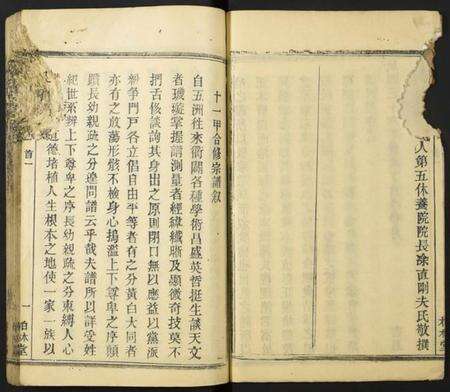 人第五休養院院長涂直剛夫氏敬撰
十一甲合修宗譜敘
自五洲往來衝闢各種學術昌盛英哲挺生談天文
者璣璇掌握講測量者經緯纖晰及顯微奇技莫不
捫舌侈談詢其身出之原則閉口無以應益以黨派
紛爭門戶各立倡自由平等者有之分黃白大同者
亦有之放蕩形骸不檢身心搗濫上下尊卑之序顛
躓長幼親疏之分遑問譜云乎哉夫譜所以詳受姓
紀世系辨上下尊卑之序長幼親疏之分束縛人心
道德培植人生根本之地使一家一族以
首一
一